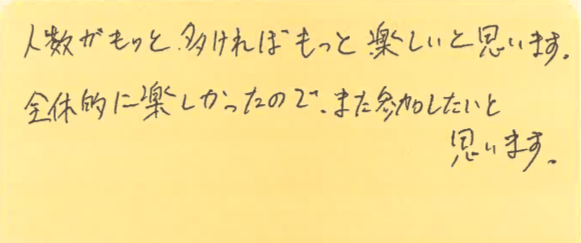 人数がもっと多ければもっと楽しいと思います。
全体的に楽しかったので、また参加したいと
思います。